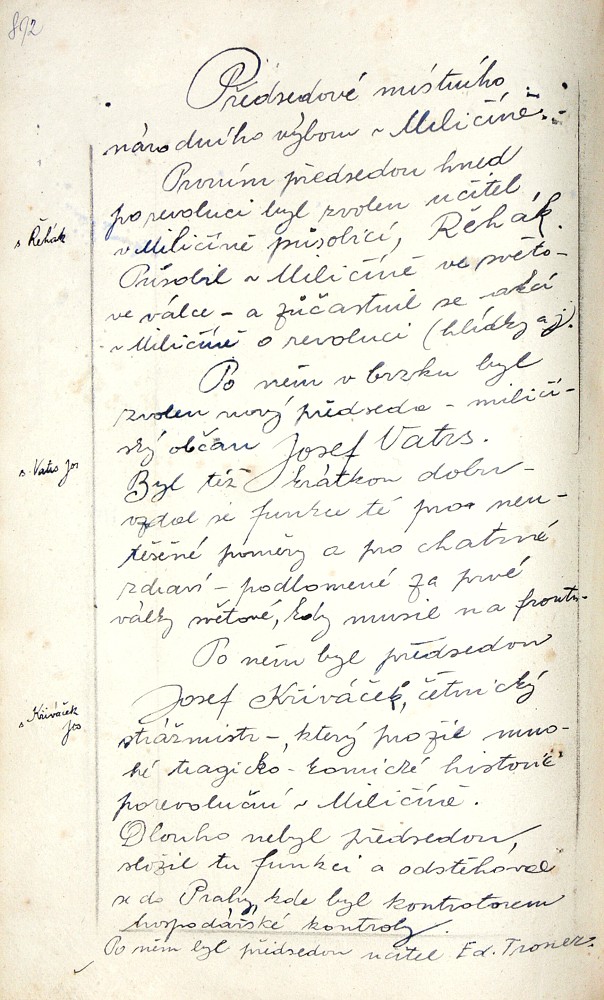 892
Předsedové místního
národního výboru v Miličíně. -
Prvním předsedou hned
po revoluci byl zvolen učitel
v Miličíně působící, Řehák.
s Řehák
Působil v Miličíně ve světo-
ve válce - a zúčastnil se akcí
v Miličíně o revoluci (hlídky aj).
Po něm v brzku byl
zvolen nový předseda - miličí-
ský občan Josef Vatrs.
s. Vatrs Jos
Byl též krátkou dobu -
vzdal se funkce té pro neu-
těšené poměry a pro chatrné
zdraví - podlomené za prvé
války světové, kdy musil na frontu.
Po něm byl předsedou
Josef Křiváček, četnický
s Křiváček
Jos
strážmistr -, který prožil mno-
hé tragicko-komické historie
porevoluční v Miličíně.
Dlouho nebyl předsedou,
složil tu funkci a odstěhoval
se do Prahy, kde byl kontrolorem
hospodářské kontroly.
Po něm byl předsedou učitel Ed. Troner.